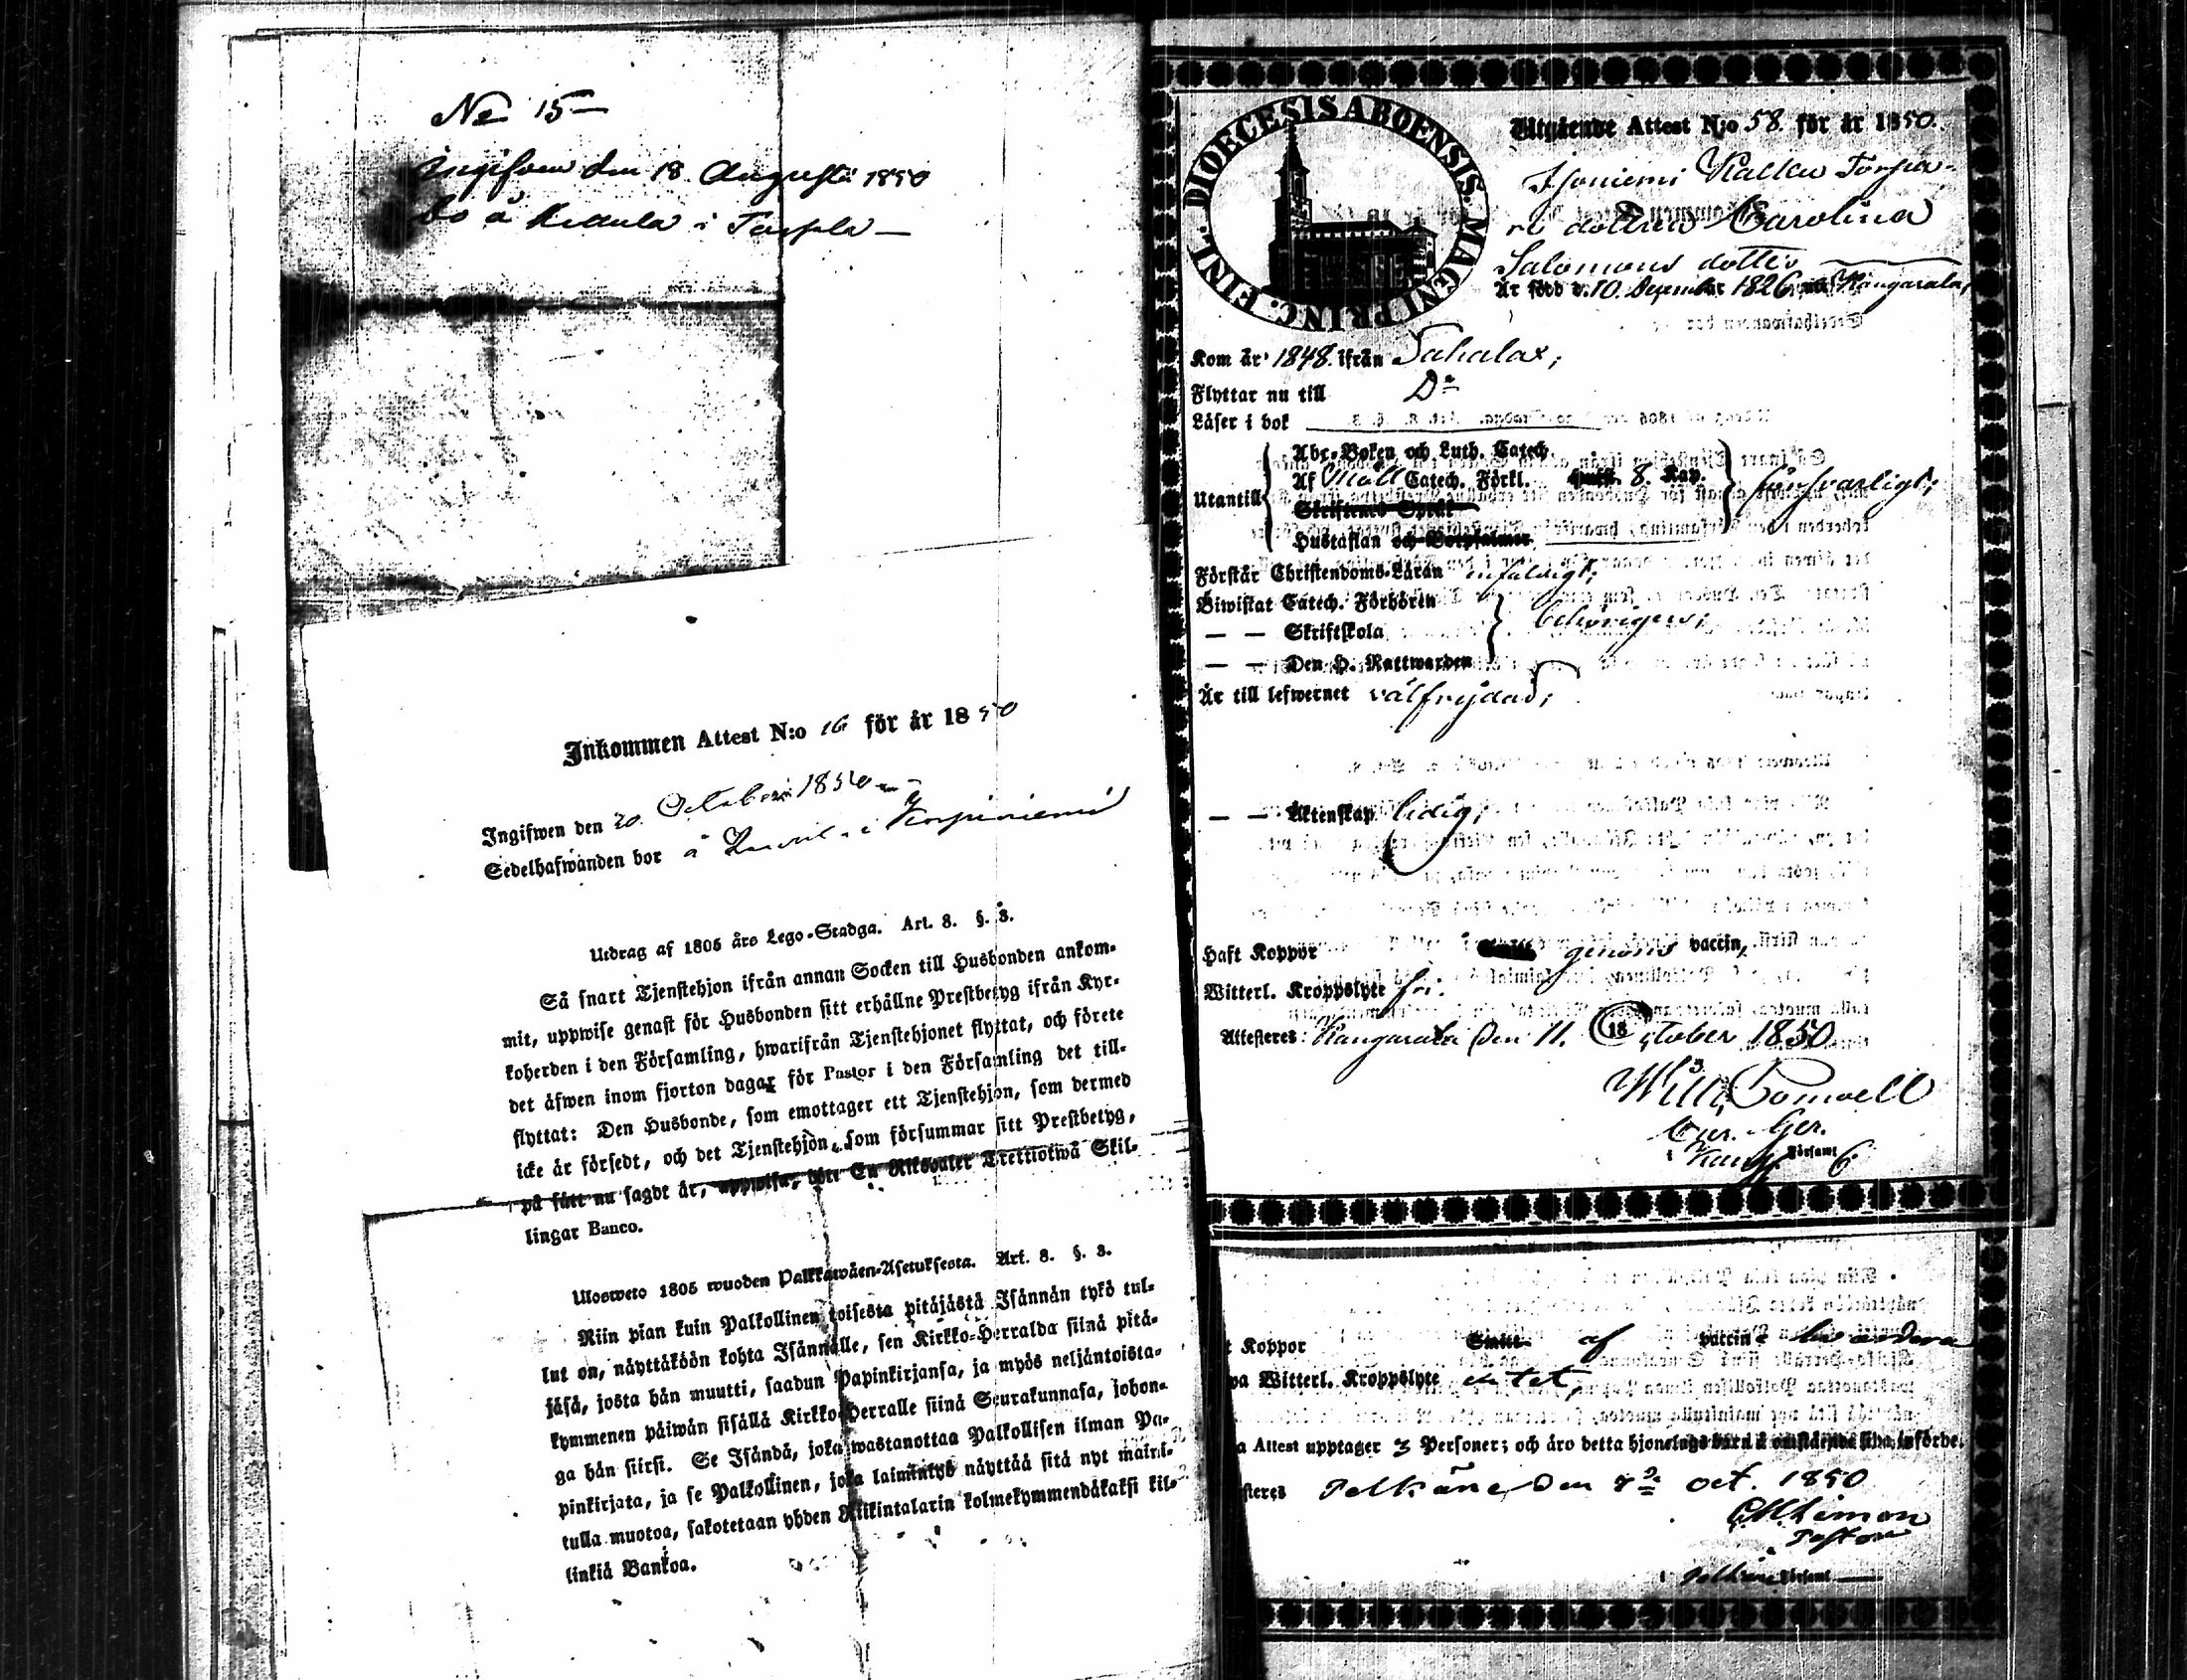 No 15
Ingifven den 18 Augusti 1850
bo å i
Inkommen Attest N:o 16 för år 1850
Ingifwen den 20. October 1850
Sedelhafwanden bor å i
Utdrag af 1805 års Lego-Stadga. Art. 8. §. 3.
Så snart Tjenstehjon ifrån annan Socken till Husbonden ankom-
mit, uppwise genast för Husbonden sitt erhållne Prestbetyg ifrån Kyr-
koherden i den Församling, hwarifrån Tjenstehjonet flyttat, och förete
det äfwen inom fjorton dagar för Pastor i den Församling det till-
flyttat: Den Husbonde, som emottager ett Tjenstehjon, som dermed
icke är försedt, och det Tjenstehjon, som försummar sitt Prestbetyg,
på sätt nu sagdt är, uppwisa, böte En Riksdaler Trettiotwå Skil-
lingar Banco.
Ulosweto 1805 wuoden Palkkawäen-Asetuksesta. Art. 8. §. 3.
Niin pian kuin Palkollinen toisesta pitäjästä Isännän tykö tul-
lut on, näyttäköön kohta Isännälle, sen Kirkko-Herralda siinä pitä-
jäsä, josta hän muutti, saadun Papinkirjansa, ja myös neljäntoista-
kymmenen päiwän sisällä Kirkko-Herralle siinä Seurakunnasa, johon-
ga hän siirsi. Se Isändä, joka wastanottaa Palkollisen ilman Pa-
pinkirjata, ja se Palkollinen, joka laiminlyö näyttää sitä nyt maini-
tulla muotoa, sakotetaan yhden Riikintalarin kolmekymmendäkaksi kil-
linkiä Bankoa.
DIOECESIS ABOENSIS. MAGNI PRINC. FINL.
Utgående Attest N:o 58. för år 1850.
Isoniemi Torpa-
re dottren Carolina
Salomons dotter
Är född d. 10. December 1826 Kangasala,
Kom år 1848. ifrån Sahalax;
Flyttar nu till D:o
Läser i bok
Utantill
Abc-Boken och Luth. Catech.
Af Catech. Förkl. 8. Kap. försvarligt;
Skriftenes Språk
Hustaflan och Botpsalmer
Förstår Christendoms-Läran enfaldigt;
Biwistat Catech. Förhören behörigen;
— — Skriftskola
— — Den H. Nattwarden
Är till lefwernet välfrejdad;
— — Äktenskap ledig;
Haft Koppor genom vaccin,
Witterl. Kroppslyte fri.
Attesteres: Kangasala den 11. October 1850
Wilh.
Cur. Ger.
i Kang. Församl.
Koppor af vaccin
Witterl. Kroppslyte
Attest upptager 3 Personer; och äro detta hjonelags barn å omstående sida införde.
Pelkäne den 8 oct. 1850
Pastor
i Församl.